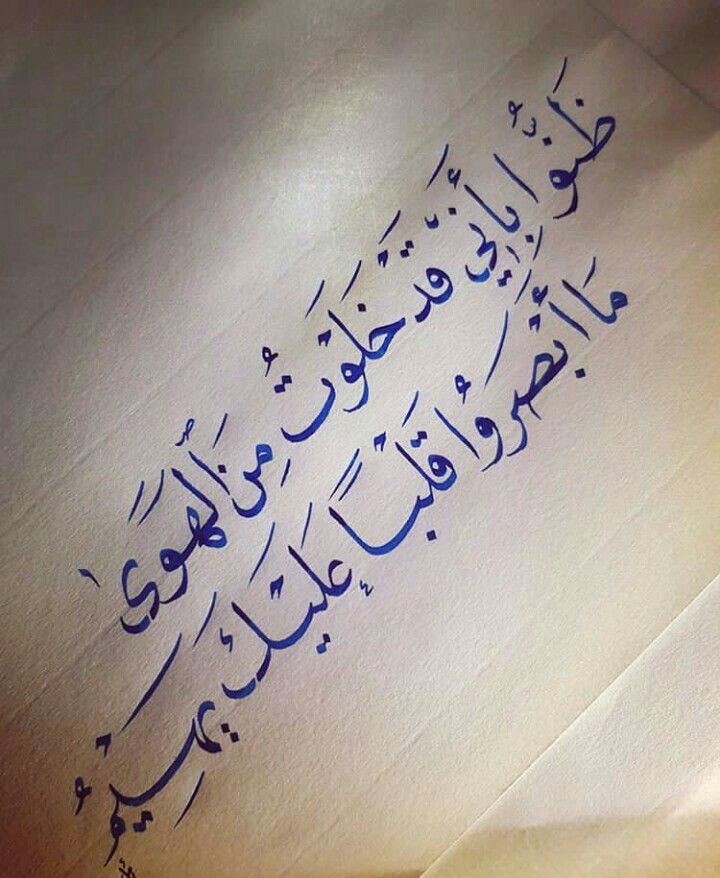 ظَنُّوا بِأَنِّي قَدْ خَلَوْتُ مِنَ ٱلْهَوَىٰ
مَا أَبْصَرُوا قَلْبًا إِلَيْكَ يَهِيمُ